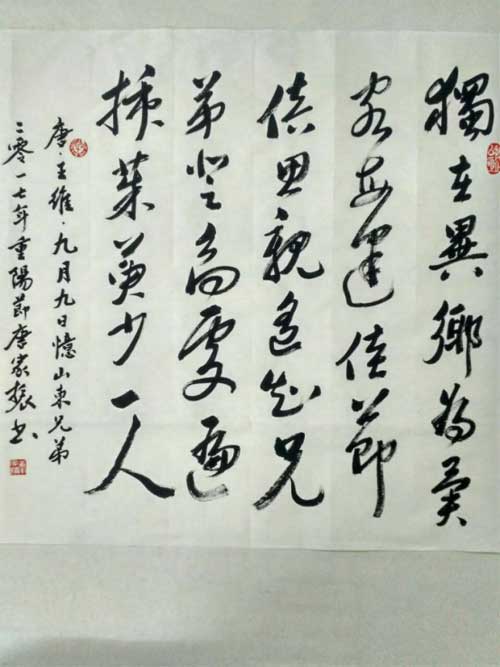 獨在異鄉為異
客每逢佳節
倍思親遙知兄
弟登高處遍
插茱萸少一人
唐·王維·九月九日憶山東兄弟
二零一七年重陽節唐家振书